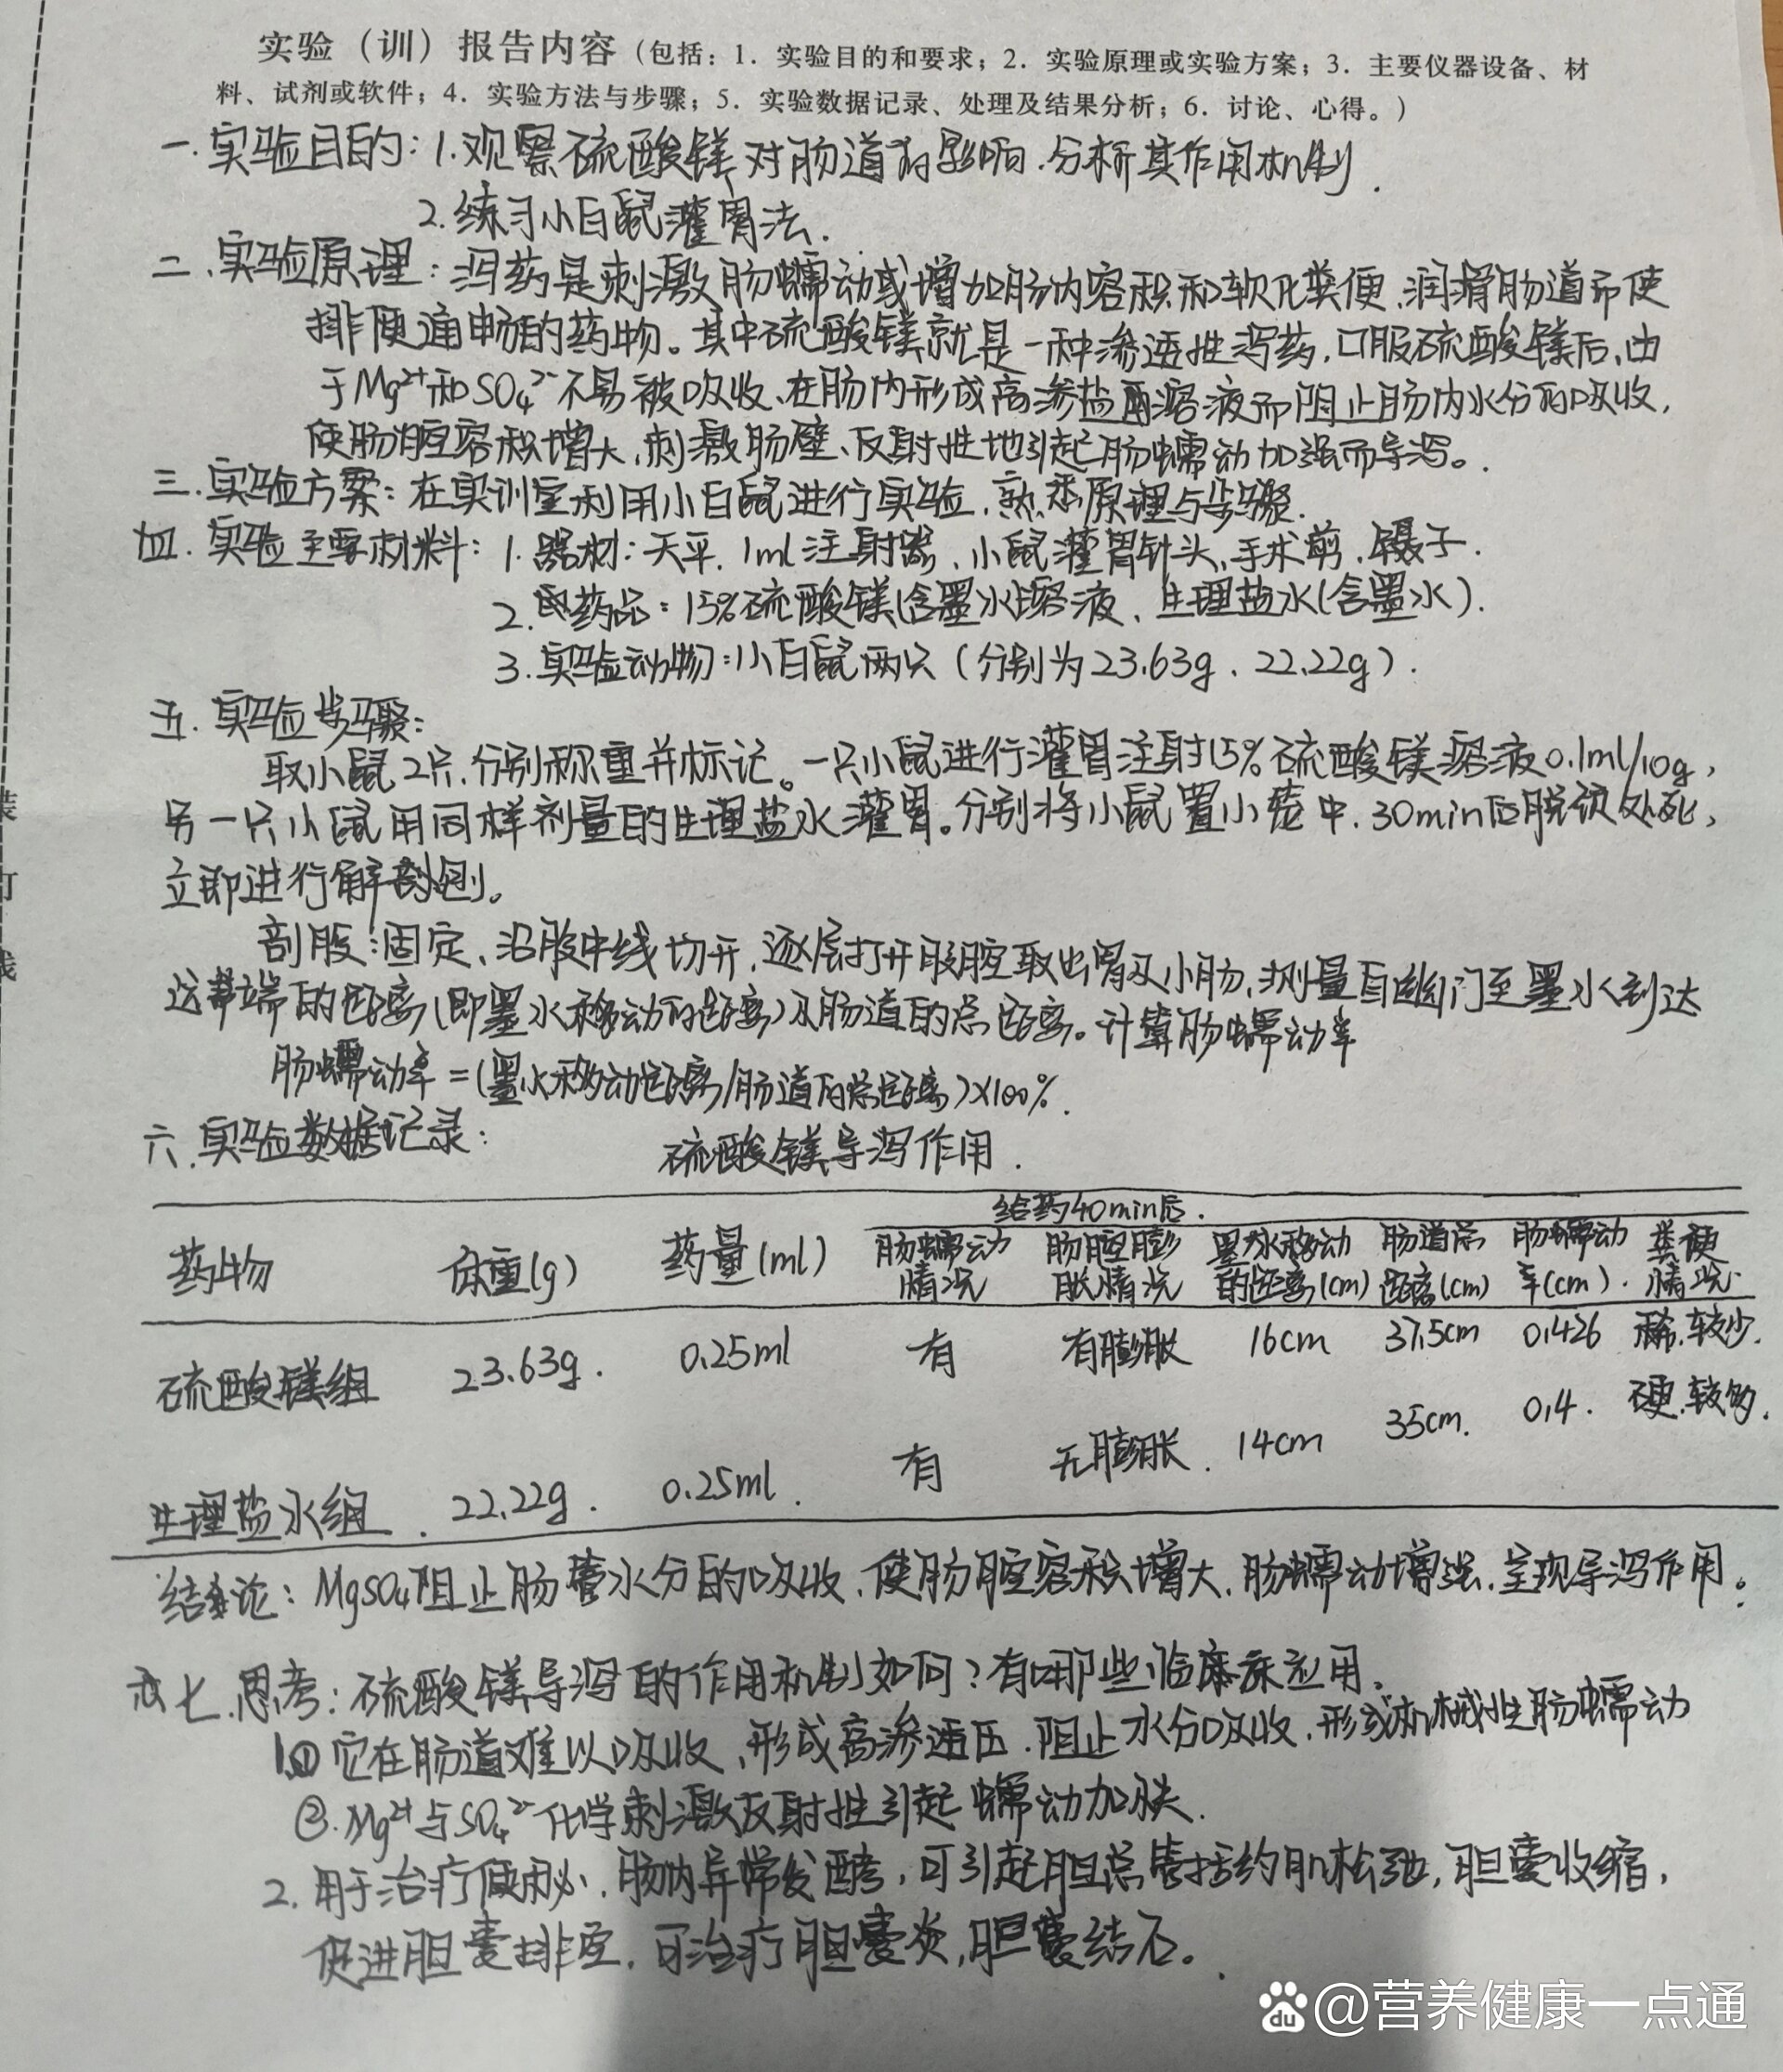 实验（训）报告内容（包括：1. 实验目的和要求；2. 实验原理或实验方案；3. 主要仪器设备、材
料、试剂或软件；4. 实验方法与步骤；5. 实验数据记录、处理及结果分析；6. 讨论、心得。）
一.实验目的：1.观察硫酸镁对肠道的影响.分析其作用机制.
2.练习小白鼠灌胃法.
二.实验原理：泻药是刺激肠蠕动或增加肠内容积和软化粪便.润滑肠道而使
排便通畅的药物。其中硫酸镁就是一种渗透性泻药,口服硫酸镁后、由
于Mg²⁺和SO₄²⁻不易被吸收、在肠内形成高渗盐溶液而阻止肠内水分的吸收,
使肠腔容积增大,刺激肠壁、反射性地引起肠蠕动加强而导泻。
三.实验方案：在实训室利用小白鼠进行实验,熟悉原理与步骤.
四.实验主要材料：1.器材：天平.1ml注射器、小鼠灌胃针头、手术剪.镊子.
2.药品：15%硫酸镁(含墨水)溶液、生理盐水(含墨水).
3.实验动物：小白鼠两只(分别为23.63g、22.22g).
五.实验步骤：
取小鼠2只.分别称重并标记。一只小鼠进行灌胃注射15%硫酸镁溶液0.1ml/10g,
另一只小鼠用同样剂量的生理盐水灌胃。分别将小鼠置小笼中.30min后脱颈处死,
立即进行解剖。
剖腹:固定、沿腹中线切开,逐层打开腹腔取出胃及小肠,测量自幽门至墨水到达
远端的距离(即墨水移动的距离)及肠道的总距离。计算肠蠕动率
肠蠕动率=(墨水移动距离/肠道的总距离)×100%.
六.实验数据记录：
硫酸镁导泻作用.
给药40min后.
药物 体重(g) 药量(ml) 肠蠕动情况 肠腔膨胀情况 墨水移动的距离(cm) 肠道总距离(cm) 肠蠕动率(cm). 粪便情况
硫酸镁组 23.63g. 0.25ml 有 有膨胀 16cm 37.5cm 0.426 稀.较少.
生理盐水组. 22.22g. 0.25ml. 有 无膨胀. 14cm 35cm. 0.4. 硬.较多.
结论：MgSO₄阻止肠管水分的吸收,使肠腔容积增大,肠蠕动增强.呈现导泻作用。
七.思考：硫酸镁导泻的作用机制如何？有哪些临床应用。
1.①它在肠道难以吸收、形成高渗透压.阻止水分吸收,形成机械性肠蠕动
②.Mg²⁺与SO₄²⁻化学刺激反射性引起蠕动加快.
2.用于治疗便秘、肠内异常发酵,可引起胆总管括约肌松弛,胆囊收缩,
促进胆囊排空,可治疗胆囊炎,胆囊结石。
@营养健康一点通